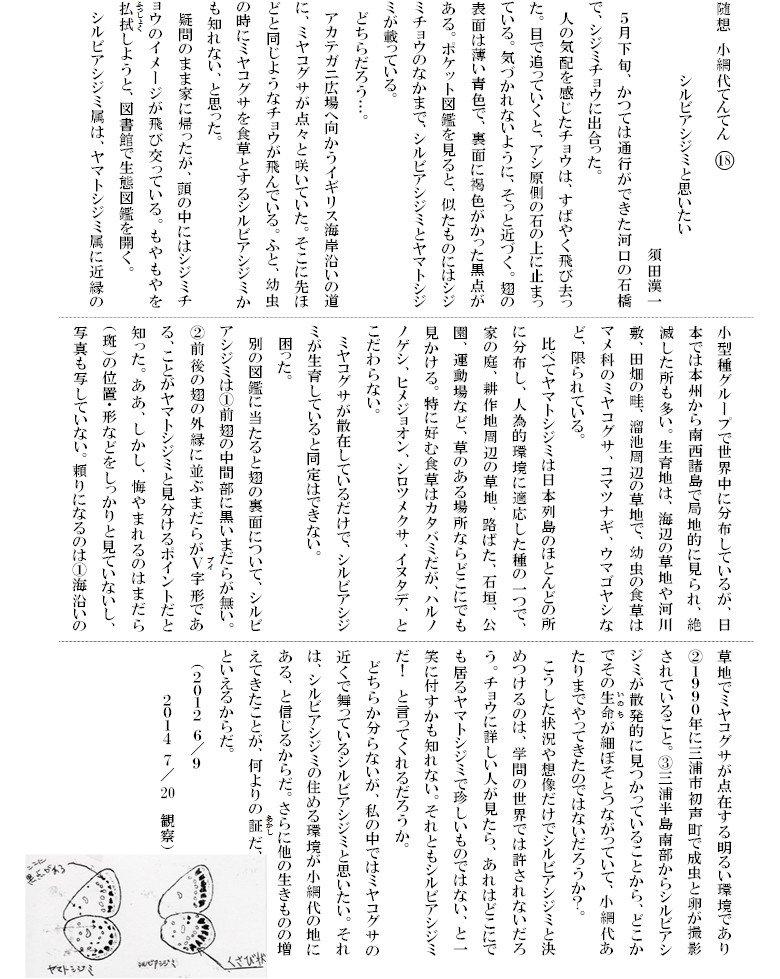 随想　小網代てんてん　⑱
シルビアシジミと思いたい
須田漢一
５月下旬、かつては通行ができた河口の石橋
で、シジミチョウに出合った。
人の気配を感じたチョウは、すばやく飛び去っ
た。目で追っていくと、アシ原側の石の上に止まっ
ている。気づかれないように、そっと近づく。翅の
表面は薄い青色で、裏面に褐色がかった黒点が
ある。ポケット図鑑を見ると、似たものにはシジ
ミチョウのなかまで、シルビアシジミとヤマトシジ
ミが載っている。
どちらだろう…。
アカテガニ広場へ向かうイギリス海岸沿いの道
に、ミヤコグサが点々と咲いていた。そこに先ほ
どと同じようなチョウが飛んでいる。ふと、幼虫
の時にミヤコグサを食草とするシルビアシジミか
も知れない、と思った。
疑問のまま家に帰ったが、頭の中にはシジミチ
ョウのイメージが飛び交っている。もやもやを
払拭しようと、図書館で生態図鑑を開く。
ふっしょく
シルビアシジミ属は、ヤマトシジミ属に近縁の
小型種グループで世界中に分布しているが、日
本では本州から南西諸島で局地的に見られ、絶
滅した所も多い。生育地は、海辺の草地や河川
敷、田畑の畦、溜池周辺の草地で、幼虫の食草は
マメ科のミヤコグサ、コマツナギ、ウマゴヤシな
ど、限られている。
比べてヤマトシジミは日本列島のほとんどの所
に分布し、人為的環境に適応した種の一つで、
家の庭、耕作地周辺の草地、路ばた、石垣、公
園、運動場など、草のある場所ならどこにでも
見かける。特に好む食草はカタバミだが、ハルノ
ノゲシ、ヒメジョオン、シロツメクサ、イヌタデ、と
こだわらない。
ミヤコグサが散在しているだけで、シルビアシジ
ミが生育していると同定はできない。
困った。
別の図鑑に当たると翅の裏面について、シルビ
アシジミは①前翅の中間部に黒いまだらが無い。
②前後の翅の外縁に並ぶまだらがＶ字形であ
ブイ
る、ことがヤマトシジミと見分けるポイントだと
知った。ああ、しかし、悔やまれるのはまだら
（斑）の位置・形などをしっかりと見ていないし、
写真も写していない。頼りになるのは①海沿いの
草地でミヤコグサが点在する明るい環境であり
②１９９０年に三浦市初声町で成虫と卵が撮影
されていること。③三浦半島南部からシルビアシ
ジミが散発的に見つかっていることから、どこか
でその生命が細ぼそとつながっていて、小網代あ
いのち
たりまでやってきたのではないだろうか？。
こうした状況や想像だけでシルビアシジミと決
めつけるのは、学問の世界では許されないだろ
う。チョウに詳しい人が見たら、あれはどこにで
も居るヤマトシジミで珍しいものではない、と一
笑に付すかも知れない。それともシルビアシジミ
だ！　と言ってくれるだろうか。
どちらか分らないが、私の中ではミヤコグサの
近くで舞っているシルビアシジミと思いたい。それ
は、シルビアシジミの住める環境が小網代の地に
ある、と信じるからだ。さらに他の生きものの増
えてきたことが、何よりの証だ、
あかし
といえるからだ。
（２０１２　６／９
２０１４　７／20　観察）
ここに
黒点がある
ヤマトシジミ
シルビアシジミ
くさび状